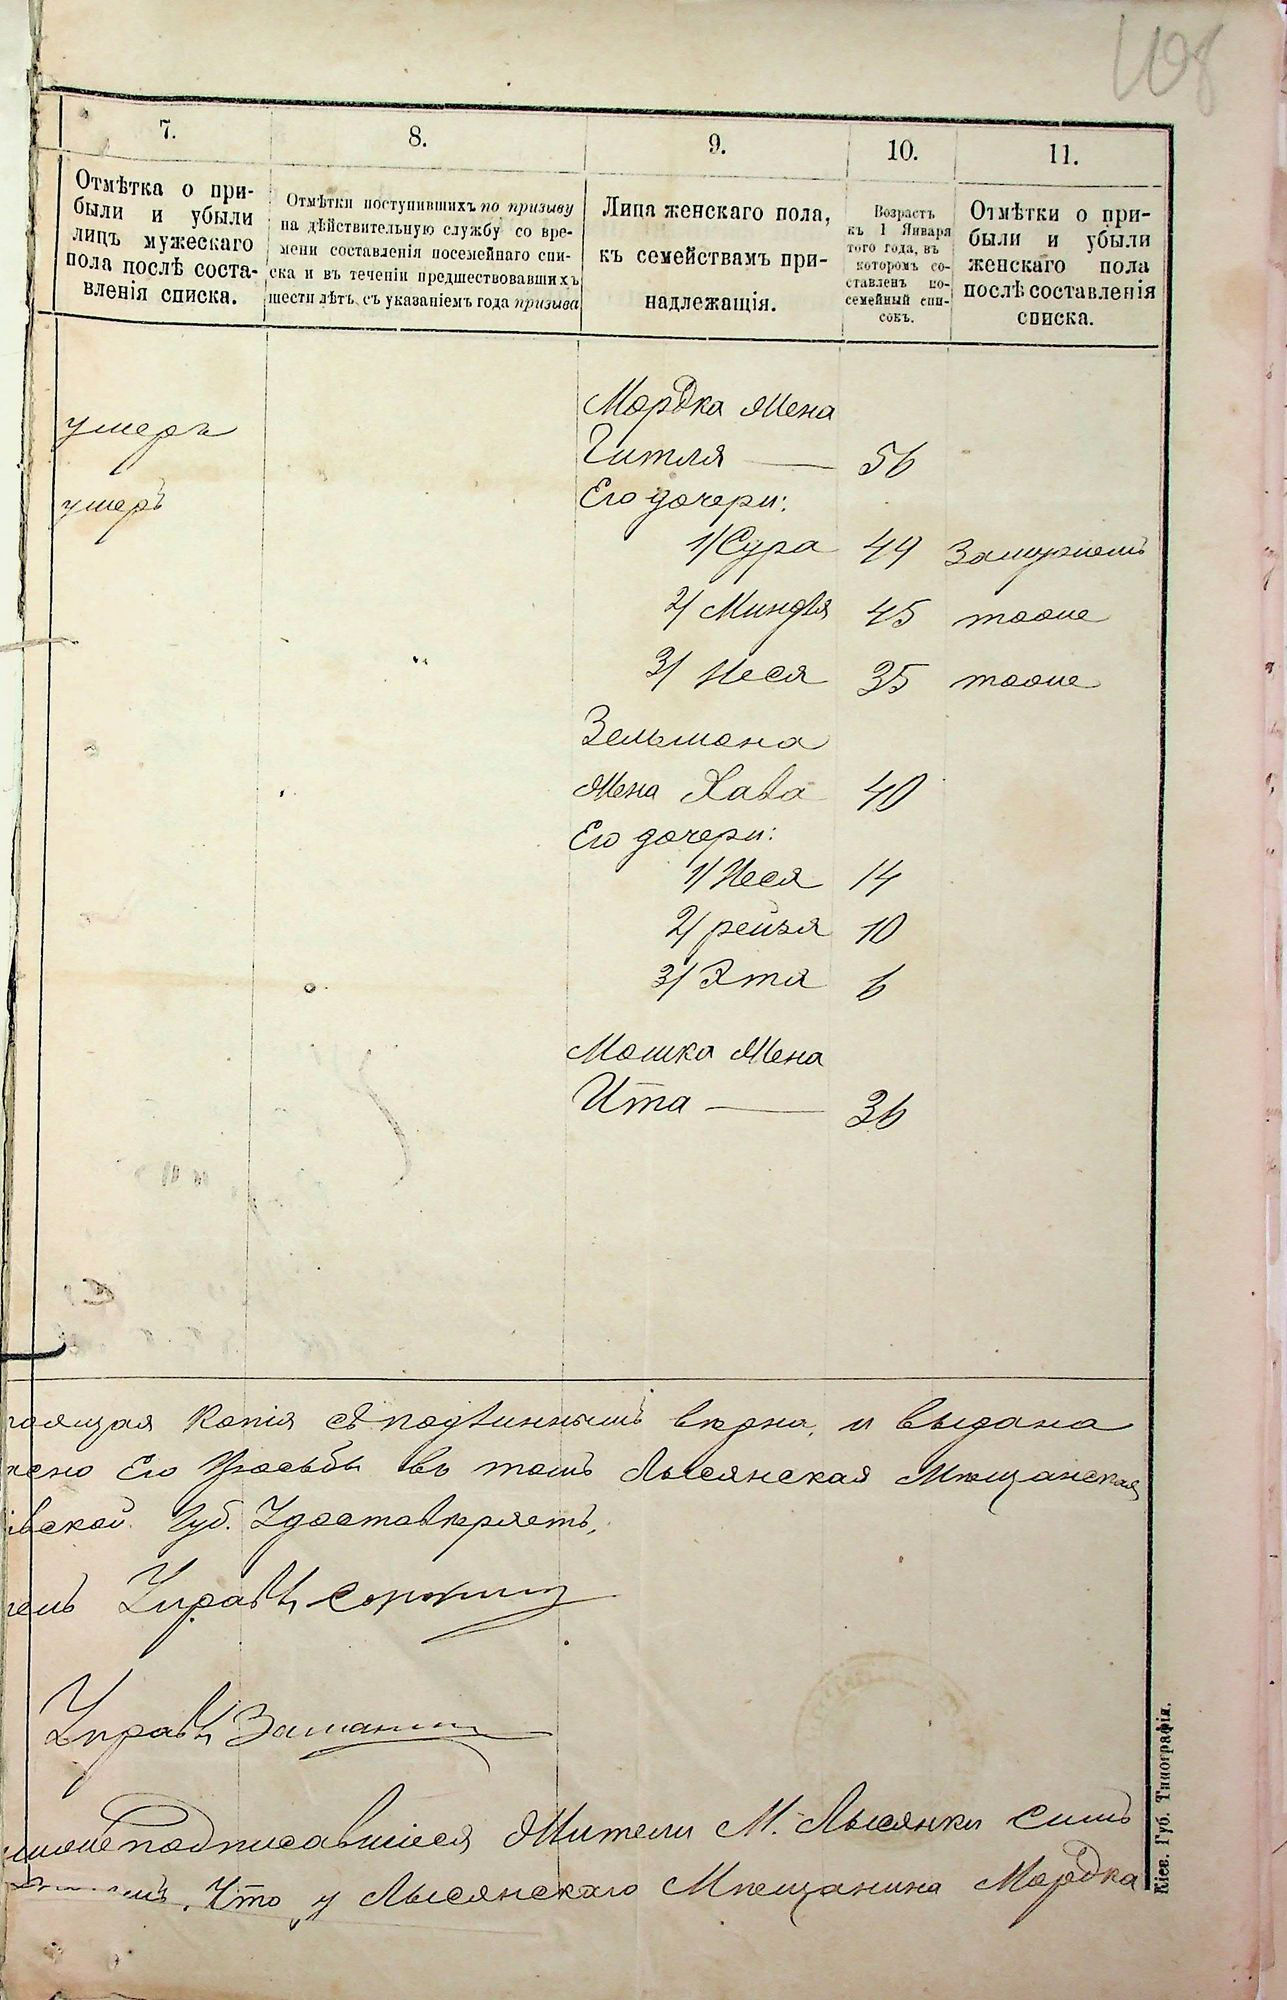 108
7.
8.
9.
10.
11.
Отмѣтка о при-
были и убыли
лицъ мужескаго
пола послѣ соста-
вленія списка.
Отмѣтки поступившихъ по призыву
на дѣйствительную службу со вре-
мени составленія посемейнаго спи-
ска и въ теченіи предшествовавшихъ
шести лѣтъ съ указаніемъ года призыва
Лица женскаго пола,
къ семействамъ при-
надлежащія.
Возрастъ
къ 1 Января
того года, въ
которомъ со-
ставленъ по-
семейный спи-
сокъ.
Отмѣтки о при-
были и убыли
женскаго пола
послѣ составленія
списка.
умеръ
умеръ
Мордка Жена
Гитля — 56
Его дочери:
1/ Сура 49 Замужемъ
2/ Миндля 45 тоже
3/ Неся 35 тоже
Зельмана
Жена Хава 40
Его дочери:
1/ Неся 14
2/ рейзя 10
3/ Этя 6
Мошка Жена
Ита — 36
тоящая Копія съ подлиннымъ вѣрна, и выдана
сно Его Просьбы въ томъ Лысянская Мѣщанская
евской Губ. Удостовѣряетъ,
Управы
Управы
подписавшіеся Жители М. Лысянки Симъ
Что у Лысянскаго Мѣщанина Мордка
Кіев. Губ. Типографія.